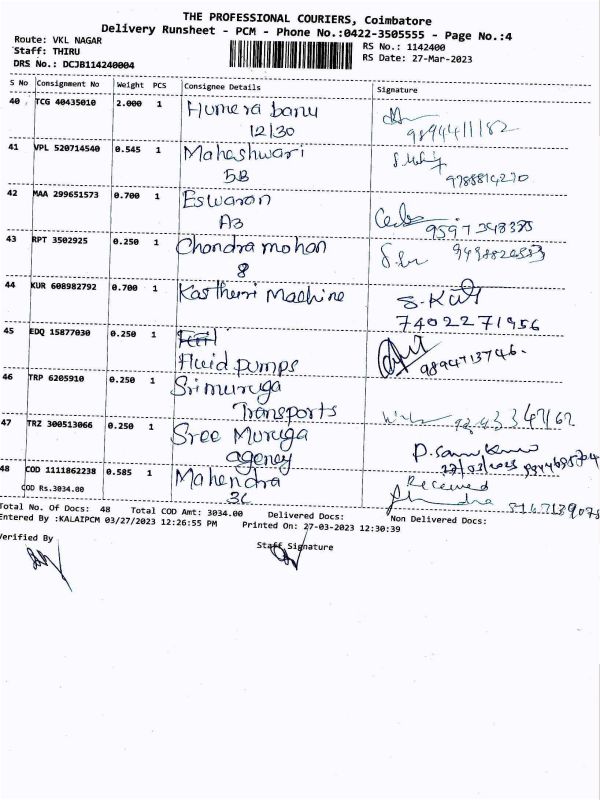 THE PROFESSIONAL COURIERS, Coimbatore
Delivery Runsheet - PCM - Phone No.:0422-3505555 - Page No.:4
Route: VKL NAGAR
Staff: THIRU
DRS No.: DCJB114240004
RS No.: 1142400
RS Date: 27-Mar-2023
S No Consignment No Weight PCS Consignee Details Signature
40 TCG 40435010 2.000 1 Humera banu
12/30 9894411182
41 VPL 520714540 0.545 1 Maheshwari
5B
42 MAA 299651573 0.700 1 Eswaran
A3
43 RPT 3502925 0.250 1 Chandra mohan
8
44 KUR 608982792 0.700 1 Kasthuri Machine
7402271956
45 EDQ 15877030 0.250 1
Fluid pumps 9894713746.
46 TRP 6205910 0.250 1 Sri muruga
Transports
47 TRZ 300513066 0.250 1 Sree Muruga
agency
48 COD 1111862238 0.585 1 Mahendra Received
COD Rs.3034.00 3C
Total No. Of Docs: 48 Total COD Amt: 3034.00 Delivered Docs: Non Delivered Docs:
Entered By :KALAIPCM 03/27/2023 12:26:55 PM Printed On: 27-03-2023 12:30:39
Verified By
Staff Signature